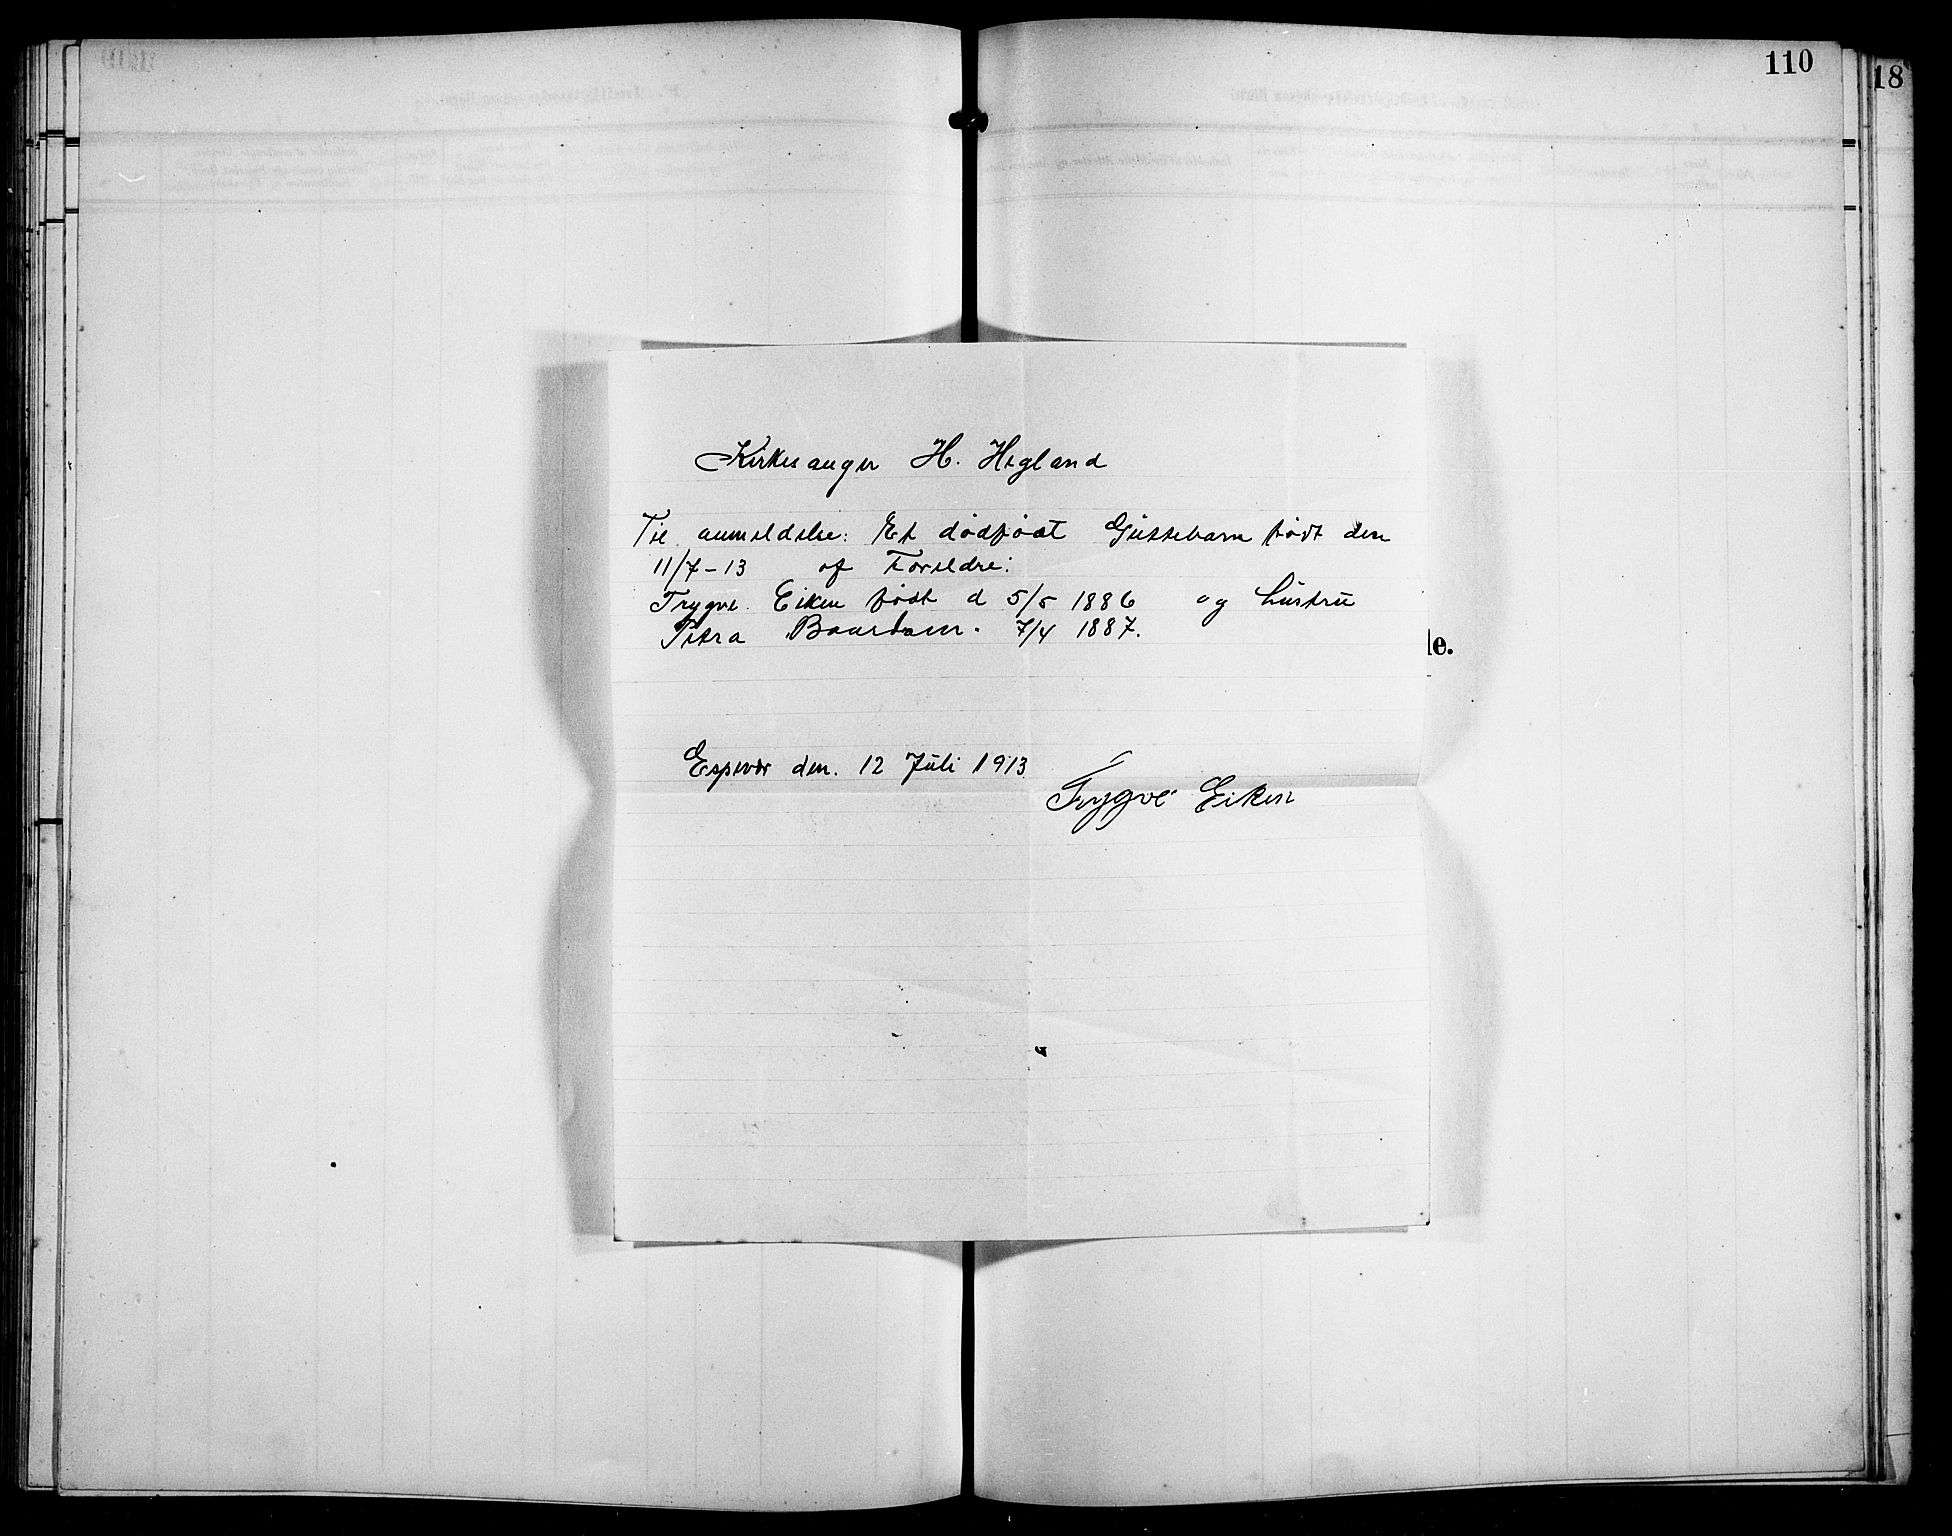 110
18
Kirkesanger H. Hegland
Til anmeldelse: Et dødfødt Guttebarn født den
11/7-13 af Foreldre:
Trygve Eiken født d 5/5 1886 og hustru
Petra Baardsen. 7/4 1887.
le.
Espevær den. 12 Juli 1913
Trygve Eiken